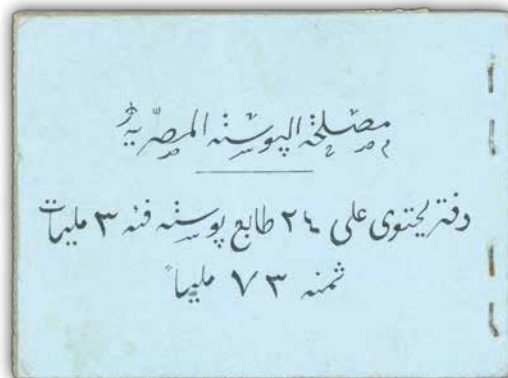 مصلحة البوسته المصريه
دفتر يحتوى على ٢٤ طابع بوسته فئه ٣ مليمات
ثمنه ٧٣ مليما